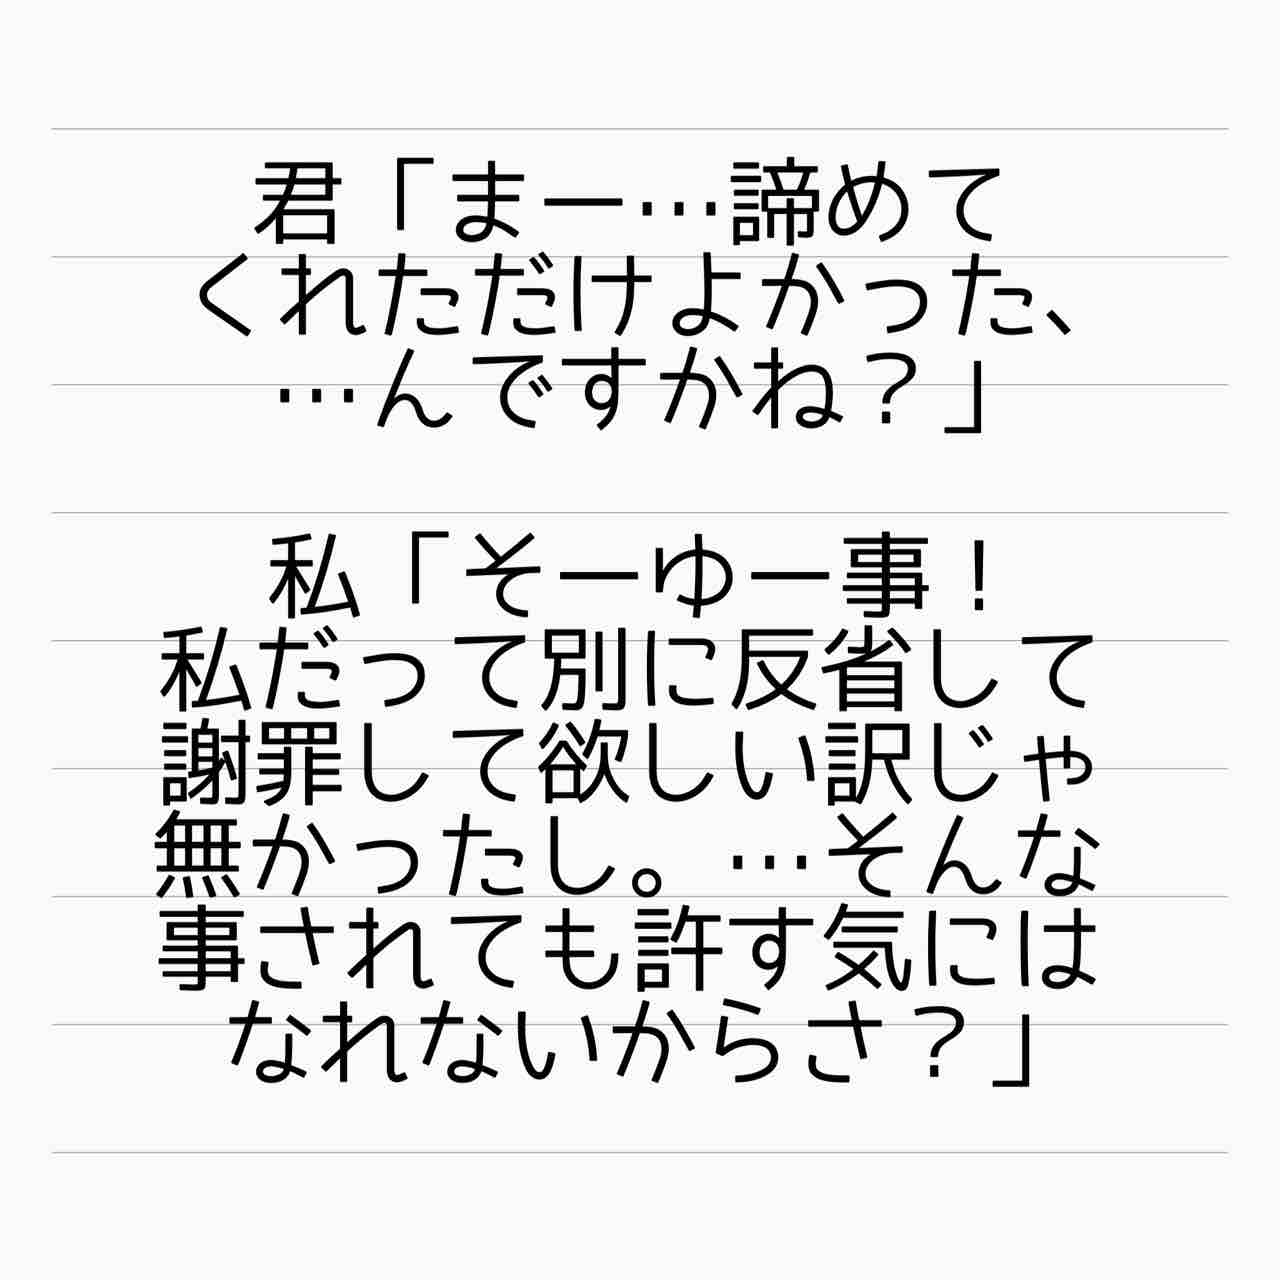 君「まー…諦めて
くれただけよかった、
…んですかね？」
私「そーゆー事！
私だって別に反省して
謝罪して欲しい訳じゃ
無かったし。…そんな
事されても許す気には
なれないからさ？」